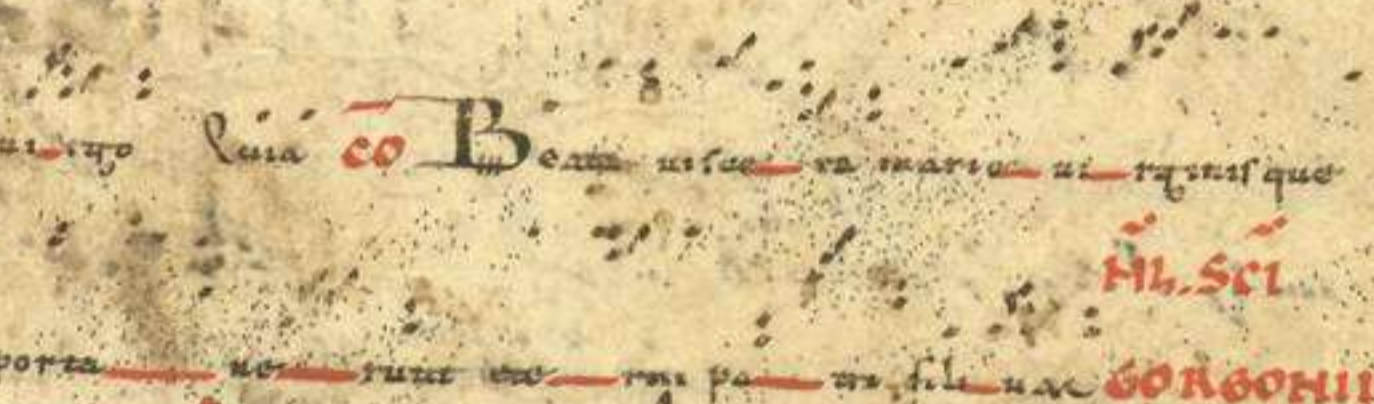 ui-rgo Quia co Beata uisce-ra marie- ui-rginis que
Nat. Sci
porta-ue-runt ete-rni pa-tris fili-um GORGONII